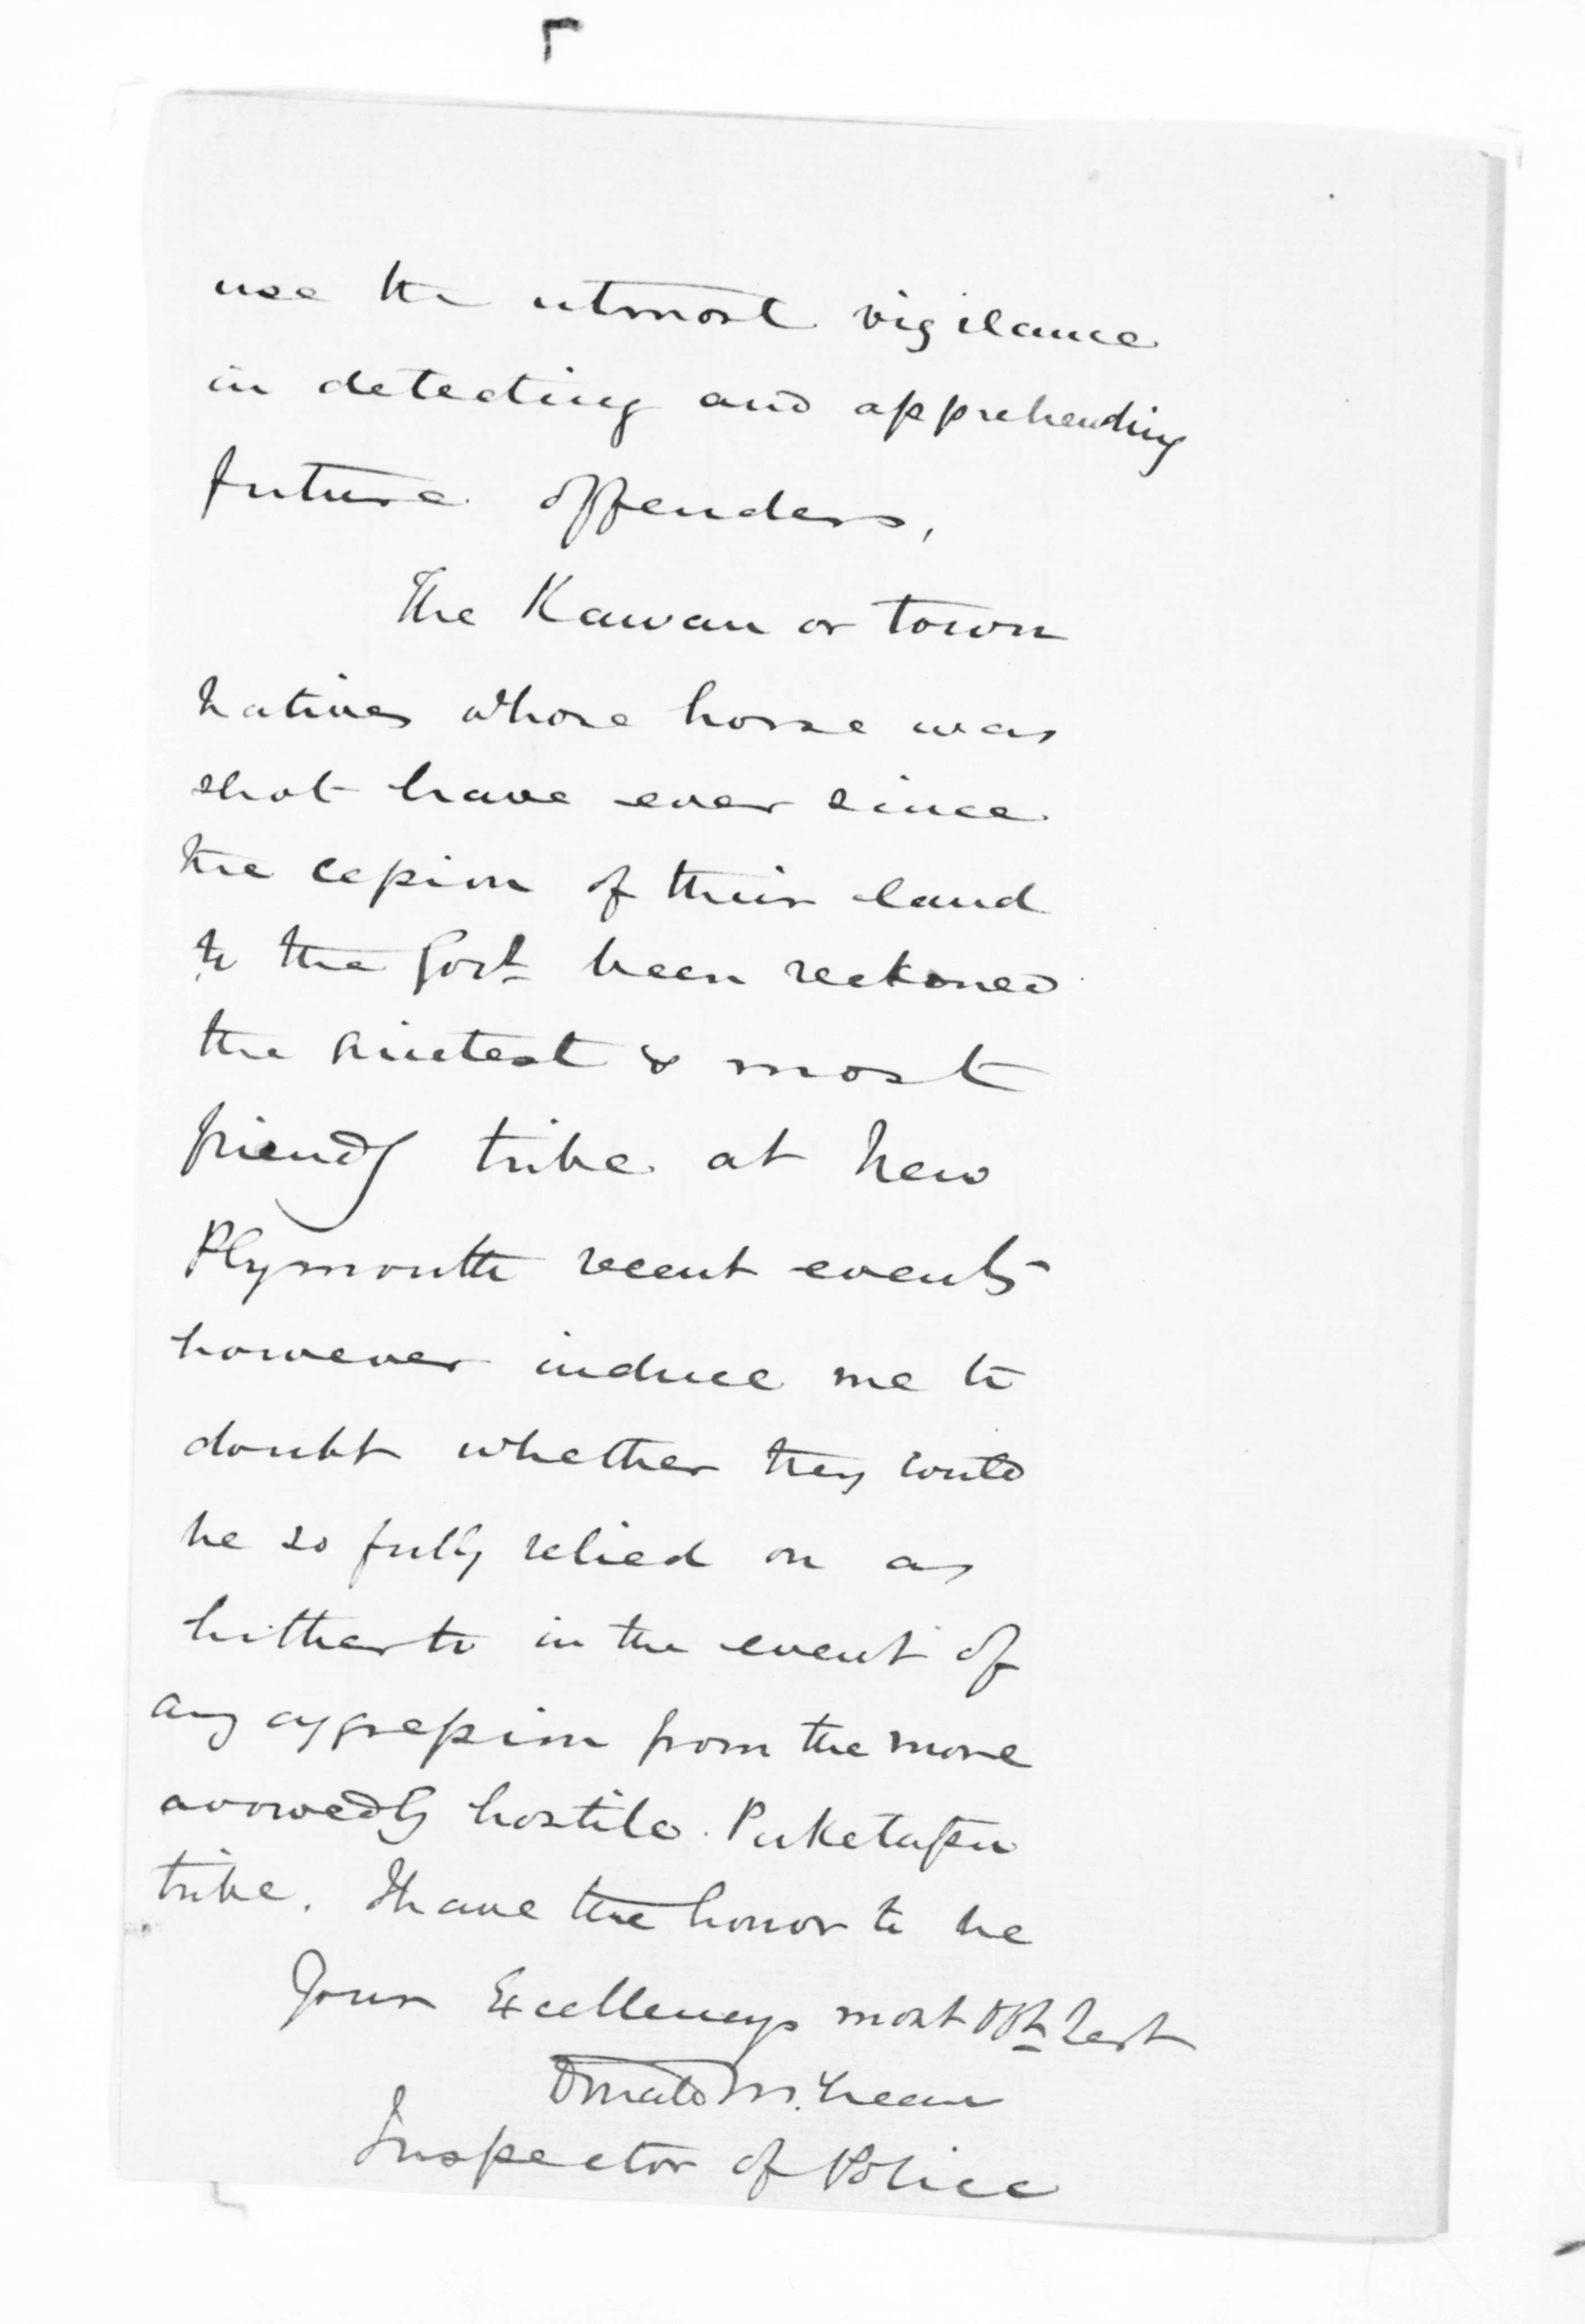 use the utmost vigilance
in detecting and apprehending
future offenders,
The Kawau or town
natives whose horse was
shot have ever since
the cession of their land
to the Govt been reckoned
the quietest & most
friendly tribe at New
Plymouth recent events
however induce me to
doubt whether they could
be so fully relied on as
hitherto in the event of
any aggression from the more
avowedly hostile Puketapu
tribe. I have the honor to be
Your Excellencys most Obt Sevt
Donald McLean
Inspector of Police